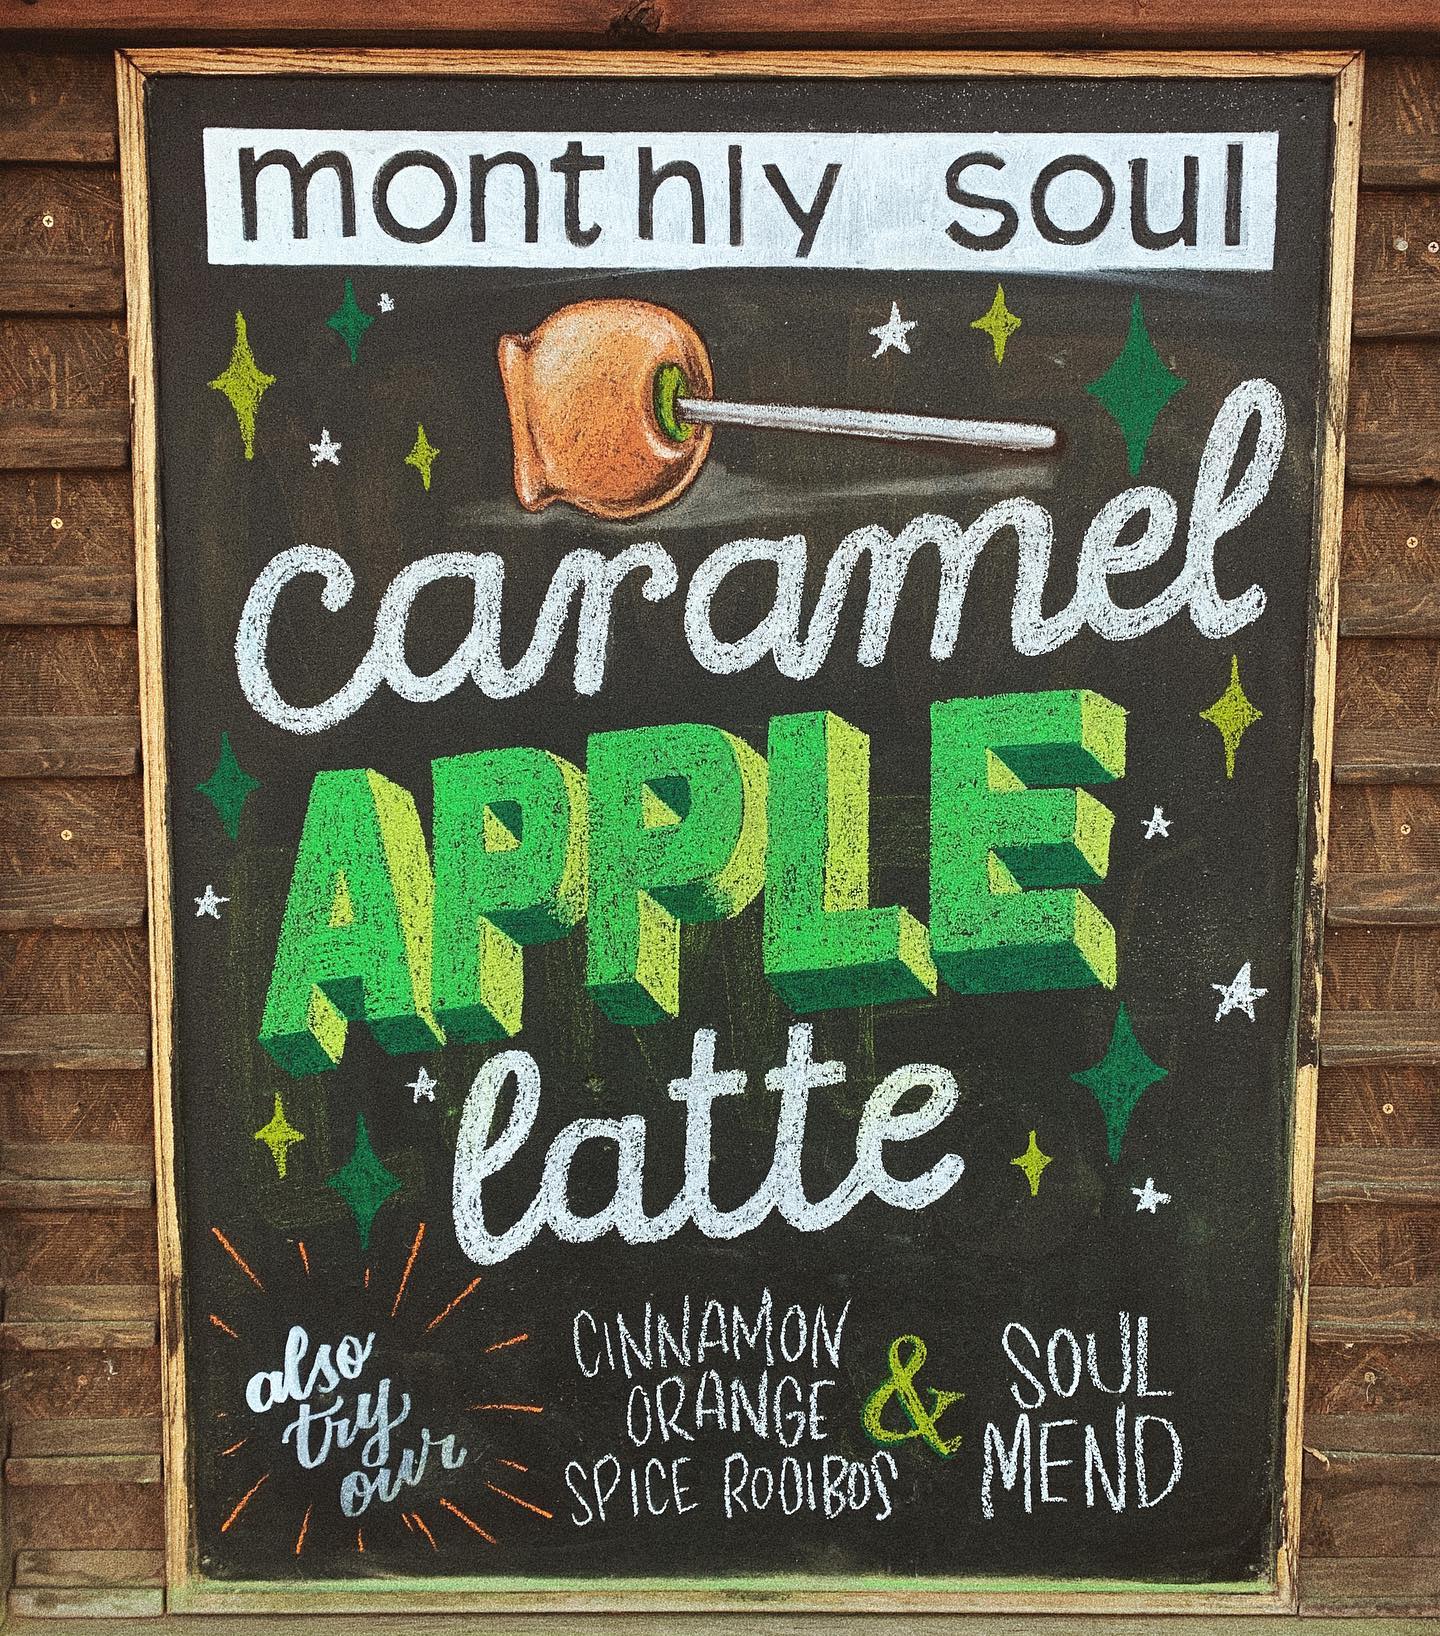 monthly soul
caramel
APPLE
latte
also
try
our
CINNAMON
ORANGE
SPICE ROOIBOS
&
SOUL
MEND